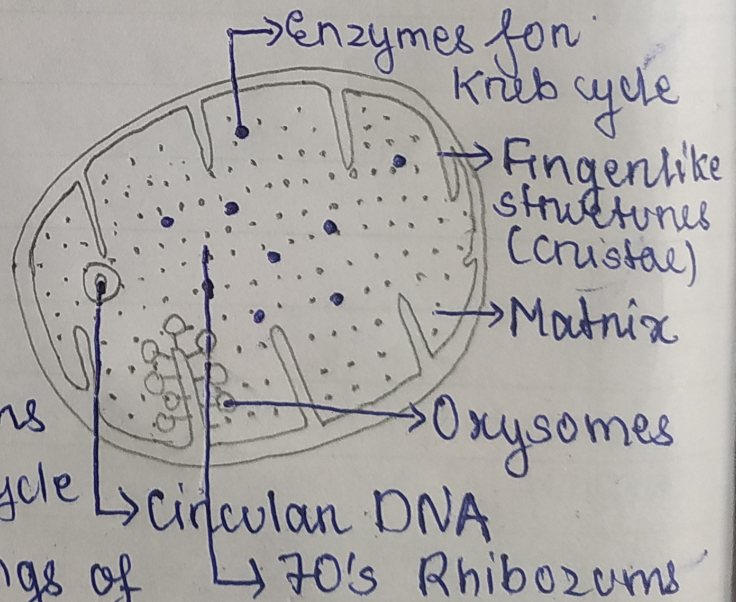 Enzymes for
Kreb cycle
Fingerlike
structures
(cristae)
Matrix
ns
Oxysomes
ycle
Circular DNA
ngs of
70's Rhibozums